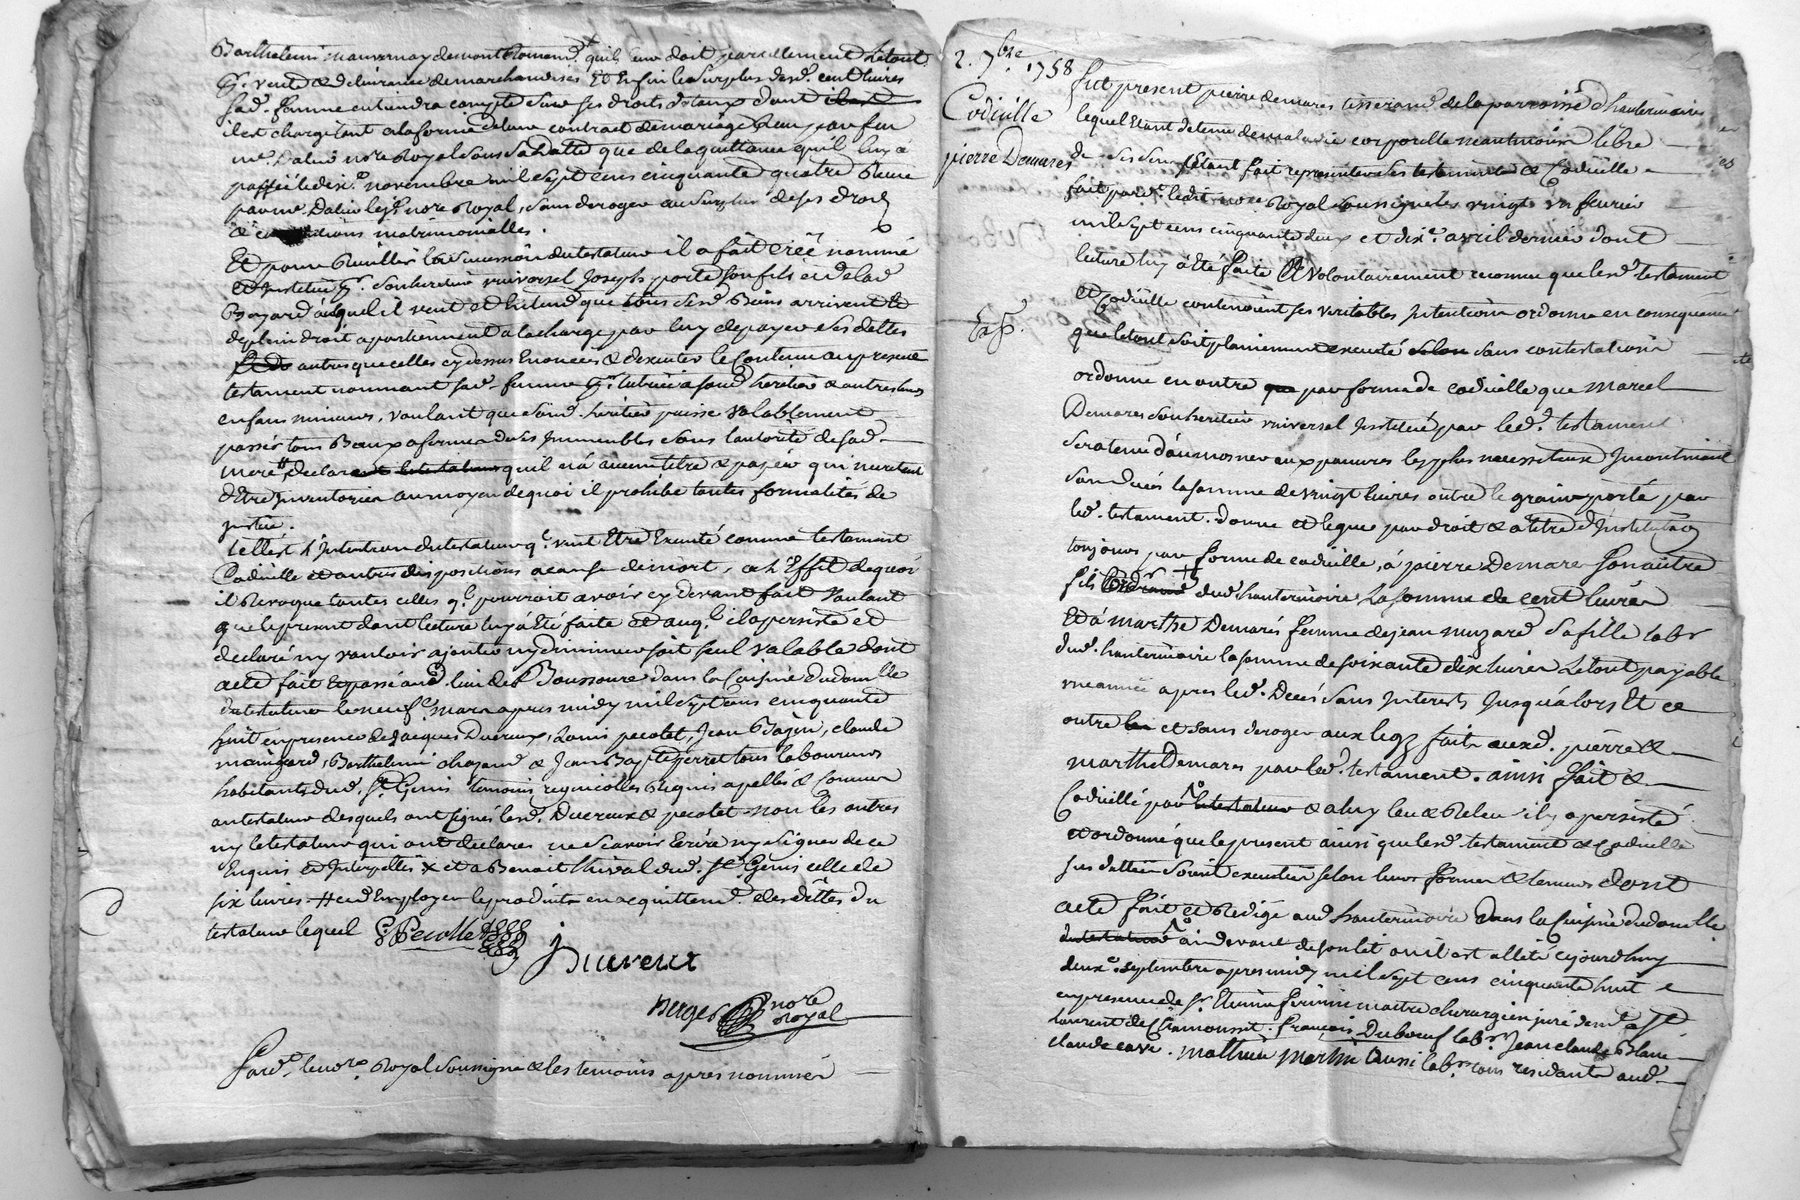 Barthelemi mauvernay de montRomand + quil leur doit pareillement
pr. vente & delivrance de marchandises Et Enfin le surplus desd. cent livres
sad. femme en tiendra compte sur ses droits dotaux dont
il est chargé tant a la forme de leur contract de mariage Reçu par feu
me. Dalin nore Royal sous sa Datte que de la quittance qu'il luy a
passée le dix e novembre mil sept cens cinquante quatre Reçue
par me. Dalin le je. nore Royal, sans deroger au surplus de ses droits
& conventions matrimonialles.
Et pour Reüillir la succession du testateur il a fait créé nommé
et institué pr. son heretier universel Joseph porte son fils et de lad
Bayard auquel il veut et Entend que tous sesd. Biens arrivent Et
de plein droit apartiennent a la charge par luy de payer ses dettes
autres que celles cy dessus Enoncees & d'executer le Contenu au present
testament nommant sad. femme pr. tutrice a sond. héritier & autres leurs
enfans mineurs, voulant que sond. héritier puisse valablement
passer tous Beaux a ferme de ses Immeubles sous l'autorité de sad.
mere, declarant quil n'a aucun titre & papier qui meritent
d'Etre Inventories au moyen de quoi il prohibe toutes formalités de
justice.
telle est l'Intention du testateur qe. veut Etre Executé comme testament
Codicille et autres dispositions a cause de mort, a l'Effet de quoi
il Revoque toutes celles ql. pourroit avoir cy devant fait voulant
que le present dont lecture luy a été faite et auql. il a persisté et
declaré n'y vouloir ajouter ny diminuer soit seul valable dont
acte fait et passé aud. lieu de Boussoure dans la Cuisine du domlle
du testateur le neuf e. mars apres midy mil sept cens cinquante
huit en presence de Jacques Ducreux, Louis pecolet, Jean Bazin, claude
mainjard, Barthelemi chazaud & Jean Baptte perret tous laboureurs
habitants dud. St. Genis temoins regnicolles Requis apellés & Connus
au testateur desquels ont signés lesd. Ducreux & pecolet non les autres
ny le testateur qui ont declares ne sçavoir Ecrire ny signer de ce
Enquis et Interpellés x et a Benoit thival dud. St. Genis celle de
six livres # et d'Employer le produit en acquittemt. des dettes du
testateur lequel G Pecollet
J Ducreux
Berger nore Royal
Pard. le nore. Royal soussigné & les temoins apres nommés
2. 7bre. 1758
Codicille
pierre Demares
Exp.
fut present pierre demares tisserand de la parroisse d'hauterivoire
lequel Etant detenu de maladie corporelle neantmoins libre
de ses sens s'Etant fait representer ses testament & Codicille
fait pardt. ledit nore Royal soussigné les vingt un fevrier
mil sept cens cinquante deux et dix e. avril dernier dont
lecture luy a été faite Et volontairement reconnu que lesd. testament
et Codicille contenoient ses veritables Intentions ordonne en consequence
que le tout soit plainement executé sans contestations
ordonne en outre par forme de codicille que marcel
Demares son heritier universel Institué par led. testament
sera tenu d'aumosner aux pauvres les plus necessiteux Incontinent
son Deces la somme de vingt livres outre le grain porté par
led. testament. donne et legue par droit & a titre d'Institution
toujours par forme de codicille, à pierre Demares son autre
fils dud. hauterivoire la somme de cent livres
Et à marthe Demarés femme de jean muzard sa fille labr
dud. hauterivoire la somme de soixante dix livres Le tout payable
une année apres led. Decés sans Interests jusqu'alors Et ce
outre et sans deroger aux legz faits auxd. pierre &
marthe Demares par led. testament. ainsi fait &
Codicillé par & a luy leu & Releu il y a persisté
et ordonné que le present ainsi que lesd. testament & Codicille
sus datté soient executées selon leurs forme & teneurs dont
acte fait et Redigé aud. hauterivoire dans la Cuisine du domlle.
au devant de son lit ou il est allité ce jourd'huy
deux e. septembre apres midy mil sept cens cinquante huit
en presence de Sr. Etienne ferrieres maitre chirurgien juré demt. a St
laurent de Chamousset. françois Duboeuf labr. Jean claude Blanc
claude cave. mathieu martin aussi labrs. tous residants aud.